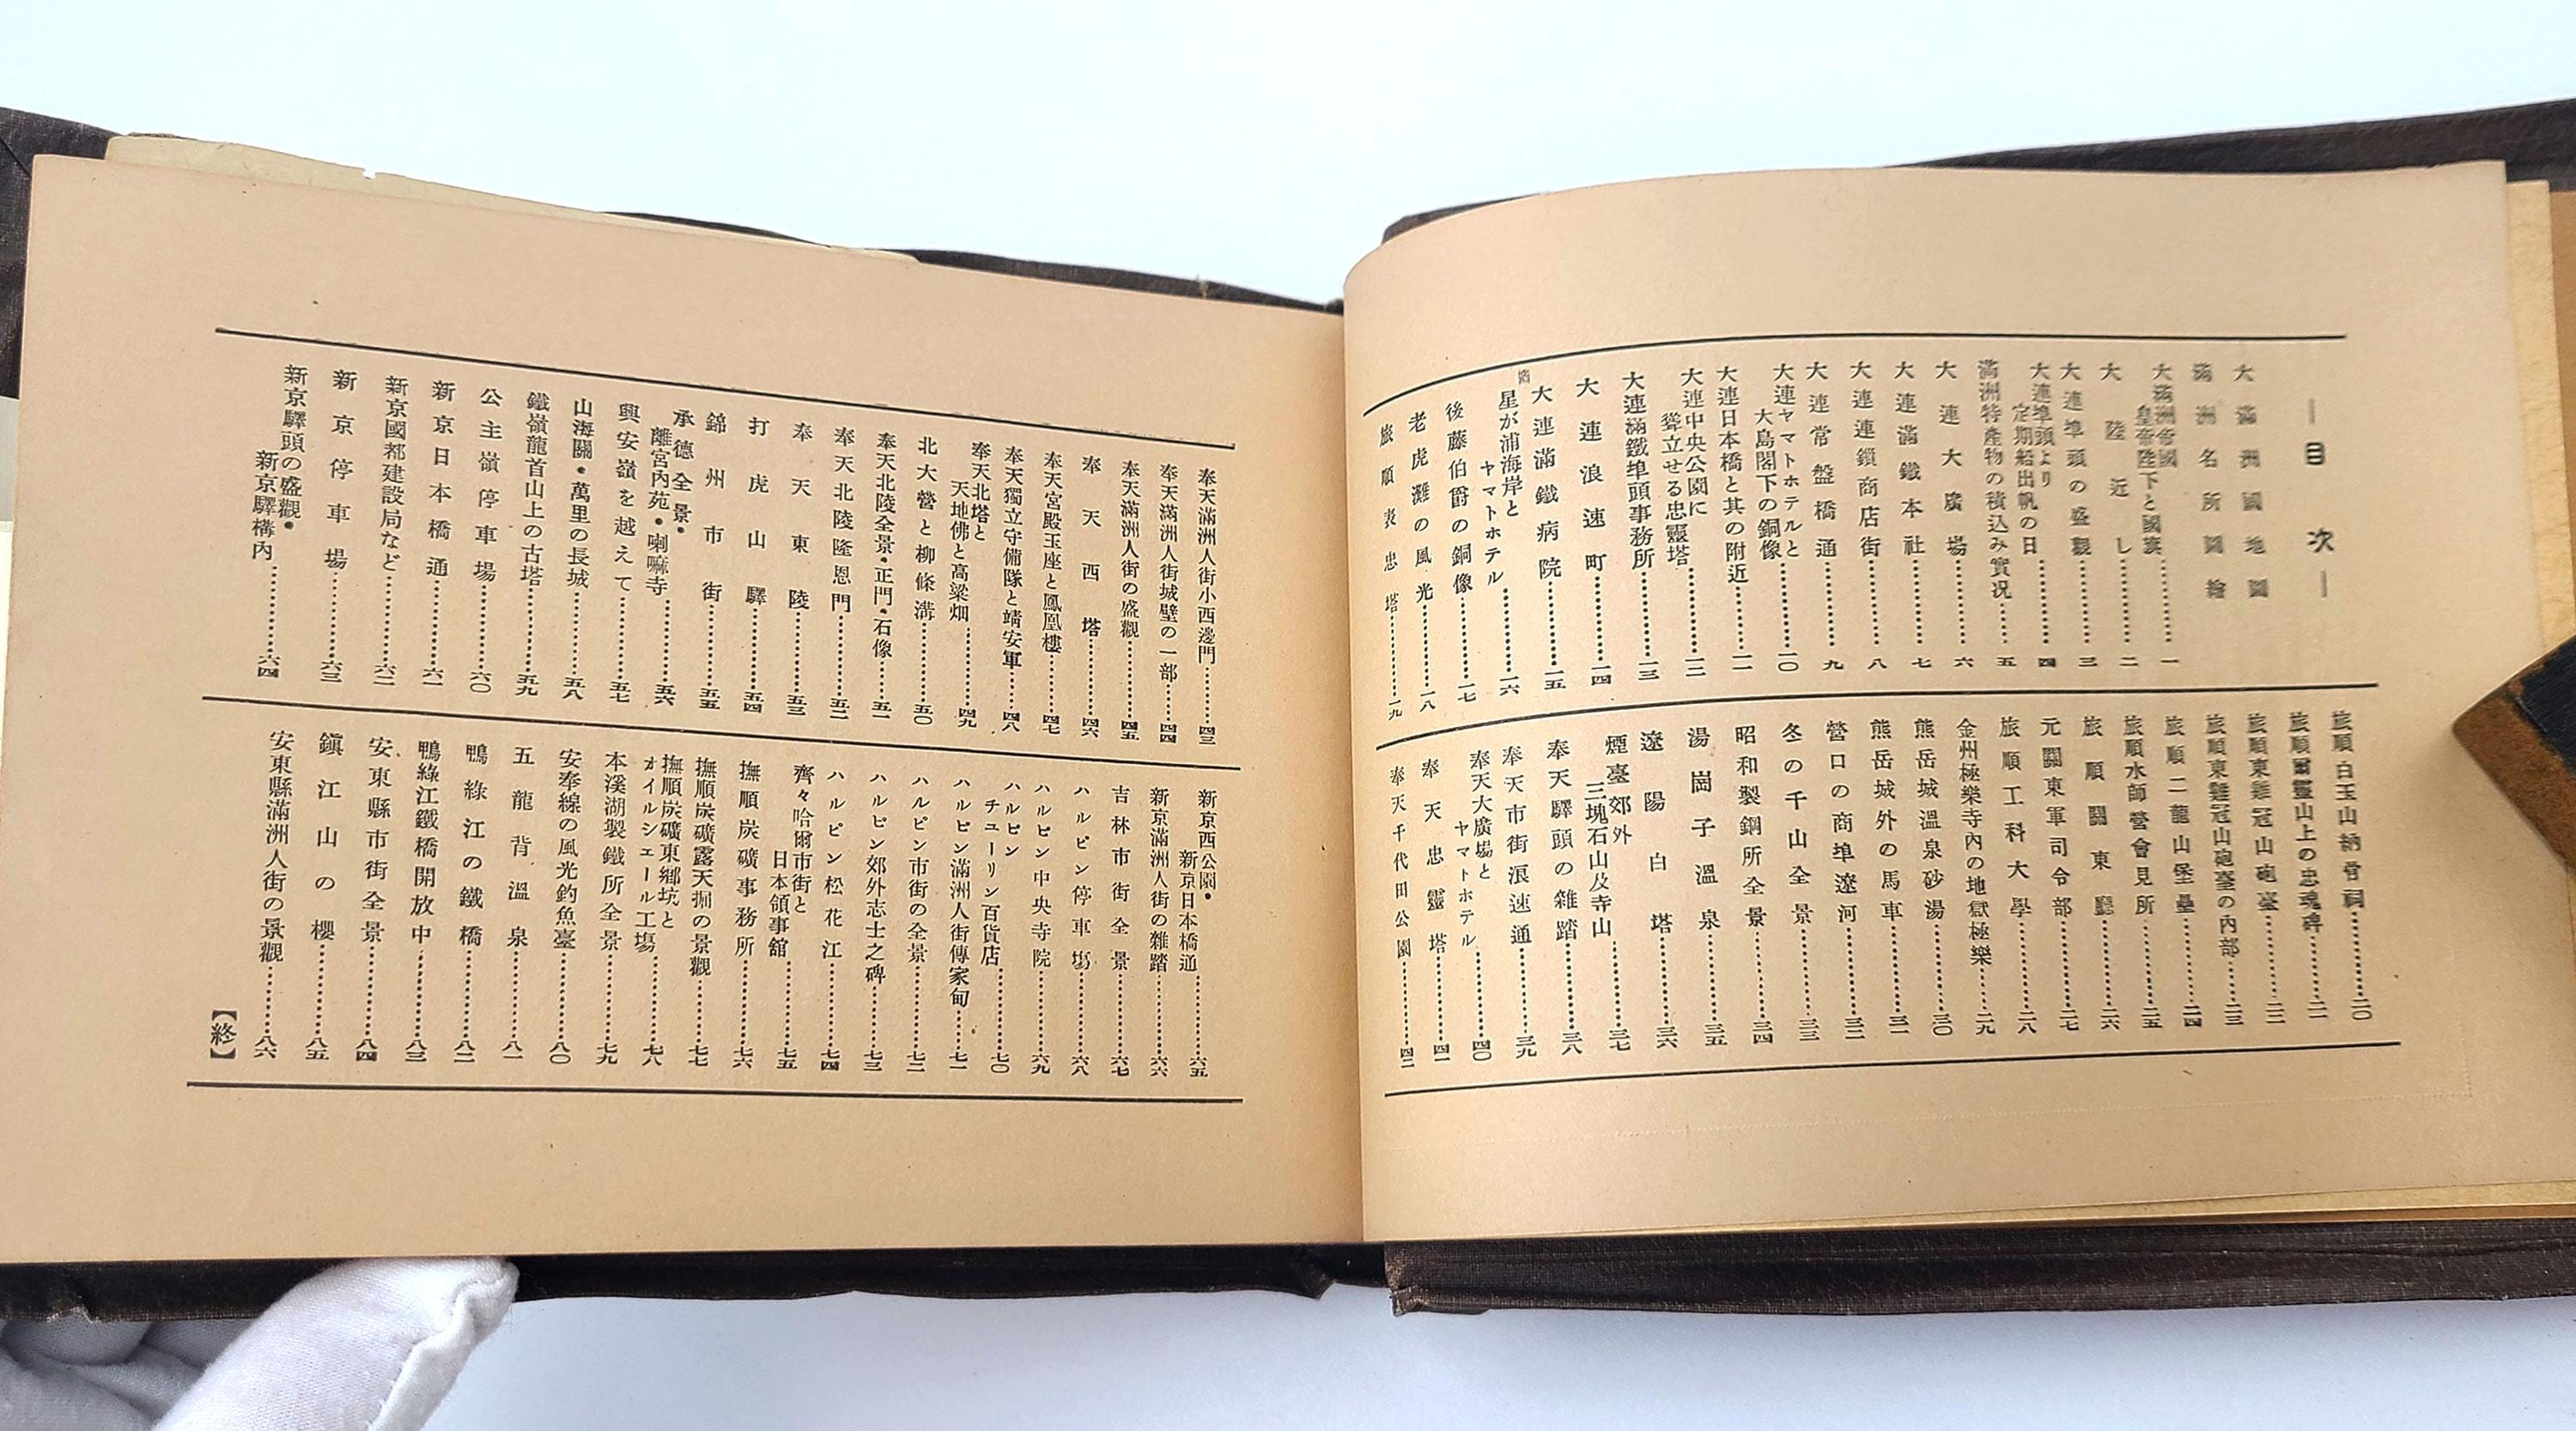 ―目次―
大滿洲國地圖
滿洲名所圖繪
大滿洲帝國
皇帝陛下と國旗………一
大陸近し………二
大連埠頭の盛觀………三
大連埠頭より
定期船出帆の日………四
滿洲特產物の積込み實况………五
大連大廣場………六
大連滿鐵本社………七
大連連鎖商店街………八
大連常盤橋通………九
大連ヤマトホテルと
大島閣下の銅像………一〇
大連日本橋と其の附近………一一
大連中央公園に
聳立せる忠靈塔………一二
大連滿鐵埠頭事務所………一三
大連浪速町………一四
大連滿鐵病院………一五
星が浦海岸と
ヤマトホテル………一六
後藤伯爵の銅像………一七
老虎灘の風光………一八
旅順表忠塔………一九
旅順白玉山納骨祠………二〇
旅順爾靈山上の忠魂碑………二一
旅順東雞冠山砲臺………二二
旅順東雞冠山砲臺の內部………二三
旅順二龍山堡壘………二四
旅順水師營會見所………二五
旅順關東廳………二六
元關東軍司令部………二七
旅順工科大學………二八
金州極樂寺內の地獄極樂………二九
熊岳城溫泉砂湯………三〇
熊岳城外の馬車………三一
營口の商埠遼河………三二
冬の千山全景………三三
昭和製鋼所全景………三四
湯崗子溫泉………三五
遼陽白塔………三六
煙臺郊外
三塊石山及寺山………三七
奉天驛頭の雜踏………三八
奉天市街浪速通………三九
奉天大廣場と
ヤマトホテル………四〇
奉天忠靈塔………四一
奉天千代田公園………四二
奉天滿洲人街小西邊門………四三
奉天滿洲人街城壁の一部………四四
奉天滿洲人街の盛觀………四五
奉天西塔………四六
奉天宮殿玉座と鳳凰樓………四七
奉天獨立守備隊と靖安軍………四八
奉天北塔と
天地佛と高粱畑………四九
北大營と柳條溝………五〇
奉天北陵全景・正門・石像………五一
奉天北陵隆恩門………五二
奉天東陵………五三
打虎山驛………五四
錦州市街………五五
承德全景・
離宮內苑・喇嘛寺………五六
興安嶺を越えて………五七
山海關・萬里の長城………五八
鐵嶺龍首山上の古塔………五九
公主嶺停車場………六〇
新京日本橋通………六一
新京國都建設局など………六二
新京停車場………六三
新京驛頭の盛觀・
新京驛構內………六四
新京西公園・
新京日本橋通………六五
新京滿洲人街の雜踏………六六
吉林市街全景………六七
ハルピン停車場………六八
ハルピン中央寺院………六九
ハルピン
チユーリン百貨店………七〇
ハルピン滿洲人街傳家甸………七一
ハルピン市街の全景………七二
ハルピン郊外志士之碑………七三
ハルピン松花江………七四
齊々哈爾市街と
日本領事館………七五
撫順炭礦事務所………七六
撫順炭礦露天掘の景觀………七七
撫順炭礦東鄉坑と
オイルシェール工場………七八
本溪湖製鐵所全景………七九
安奉線の風光釣魚臺………八〇
五龍背溫泉………八一
鴨綠江の鐵橋………八二
鴨綠江鐵橋開放中………八三
安東縣市街全景………八四
鎭江山の櫻………八五
安東縣滿洲人街の景觀………八六
【終】